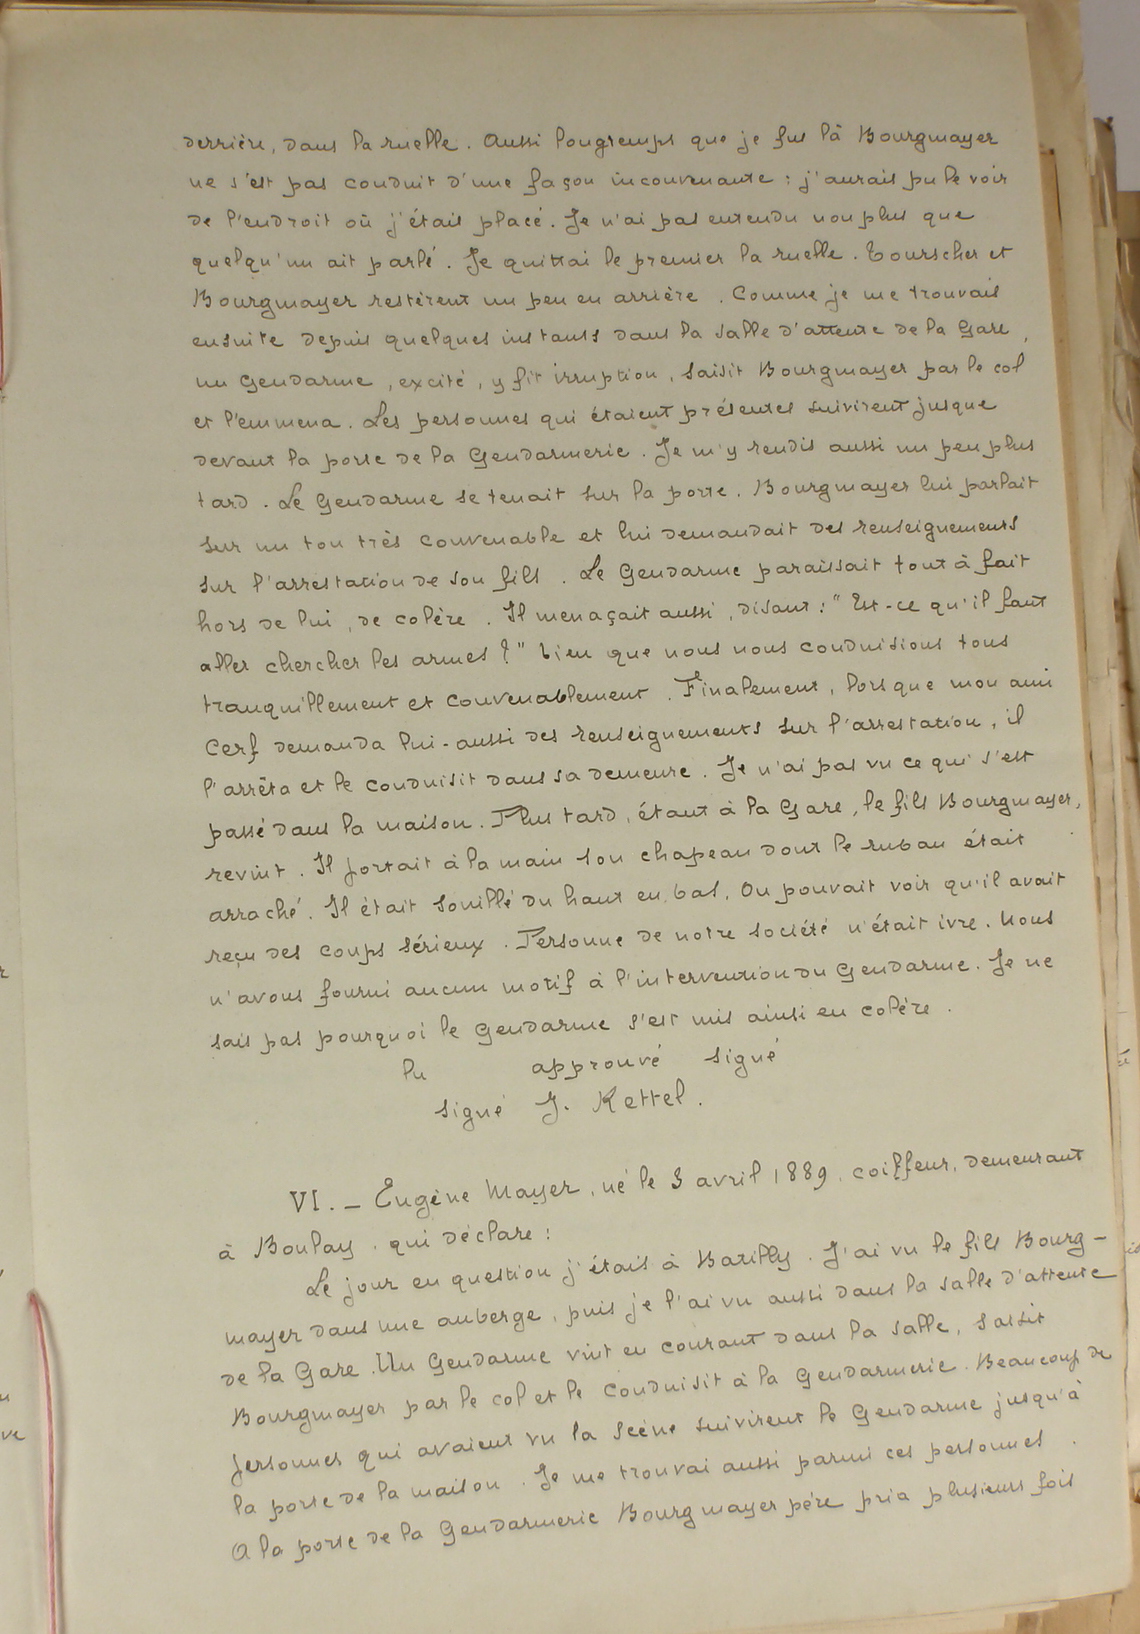 derrière, dans la ruelle. Aussi longtemps que je fus là Bourgmayer
ne s'est pas conduit d'une façon inconvenante : j'aurais pu le voir
de l'endroit où j'étais placé. Je n'ai pas entendu non plus que
quelqu'un ait parlé. Je quittai le premier la ruelle. Tourscher et
Bourgmayer restèrent un peu en arrière. Comme je me trouvais
ensuite depuis quelques instants dans la salle d'attente de la Gare,
un Gendarme, excité, y fit irruption, saisit Bourgmayer par le col
et l'emmena. Les personnes qui étaient présentes suivirent jusque
devant la porte de la Gendarmerie. Je m'y rendis aussi un peu plus
tard. Le Gendarme se tenait sur la porte. Bourgmayer lui parlait
sur un ton très convenable et lui demandait des renseignements
sur l'arrestation de son fils. Le Gendarme paraissait tout à fait
hors de lui, de colère. Il menaçait aussi, disant : "Est-ce qu'il faut
aller chercher les armes ?" bien que nous nous conduisions tous
tranquillement et convenablement. Finalement, lorsque mon ami
Cerf demanda lui-aussi des renseignements sur l'arrestation, il
l'arrêta et le conduisit dans sa demeure. Je n'ai pas vu ce qui s'est
passé dans la maison. Plus tard, étant à la Gare, le fils Bourgmayer,
revint. Il portait à la main son chapeau dont le ruban était
arraché. Il était souillé du haut en bas. On pouvait voir qu'il avait
reçu des coups sérieux. Personne de notre société n'était ivre. Nous
n'avons fourni aucun motif à l'intervention du Gendarme. Je ne
sais pas pourquoi le Gendarme s'est mis ainsi en colère.
lu approuvé signé
signé J. Kettel.
VI. – Eugène Mayer, né le 3 avril 1889, coiffeur, demeurant
à Boulay, qui déclare :
Le jour en question j'étais à Barilly. J'ai vu le fils Bourg-
mayer dans une auberge, puis je l'ai vu aussi dans la salle d'attente
de la Gare. Un Gendarme vint en courant dans la salle, saisit
Bourgmayer par le col et le conduisit à la Gendarmerie. Beaucoup de
personnes qui avaient vu la scène suivirent le Gendarme jusqu'à
la porte de la maison. Je me trouvai aussi parmi ces personnes.
A la porte de la Gendarmerie Bourgmayer père pria plusieurs fois